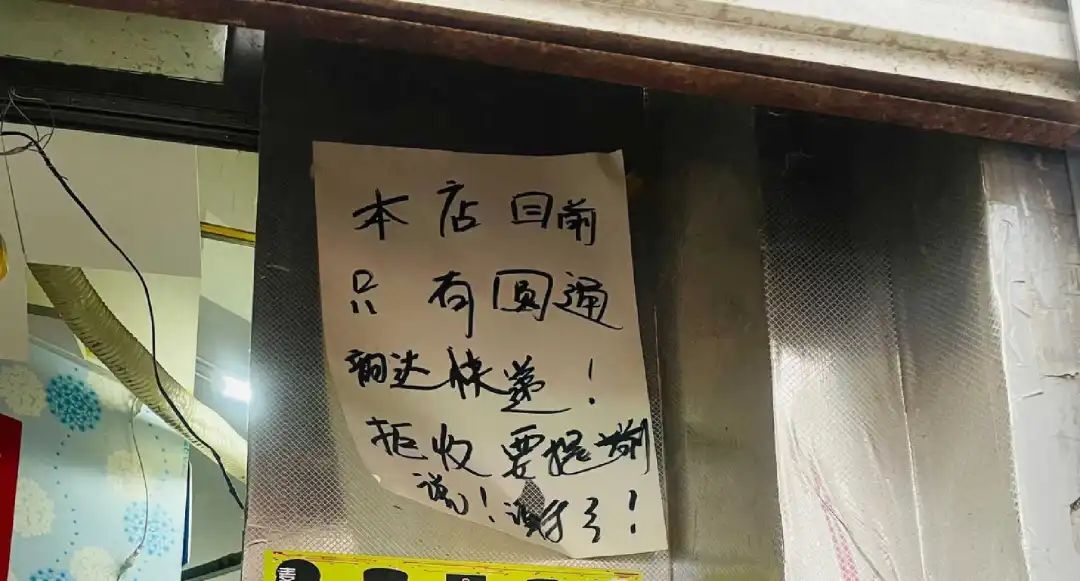 本店目前
只有圆通
韵达快递！
拒收要提前
说！谢谢！
麦